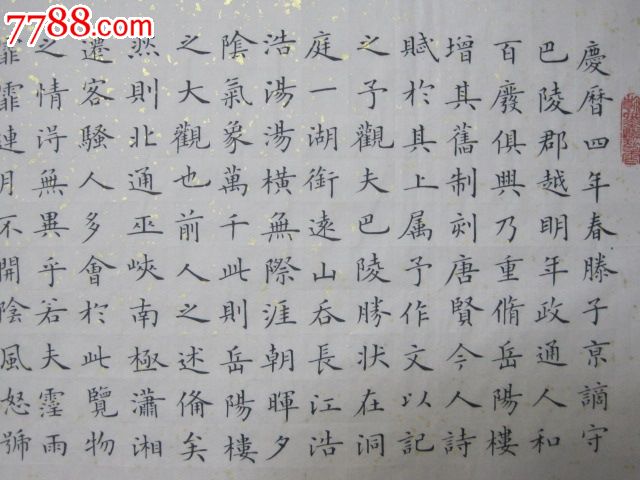 7788.com
慶曆四年春滕子亰謫守
巴陵郡越明年政通人和
百廢俱興乃重脩岳陽樓
增其舊制刻唐賢今人詩
賦於其上属予作文以記
之予觀夫巴陵勝狀在洞
庭一湖銜遠山吞長江浩
浩湯湯橫無際涯朝暉夕
陰氣象萬千此則岳陽樓
之大觀也前人之述俻矣
然則北通巫峽南極瀟湘
遷客騷人多會於此覽物
之情淂無異乎若夫霪雨
霏霏連月不開陰風怒號